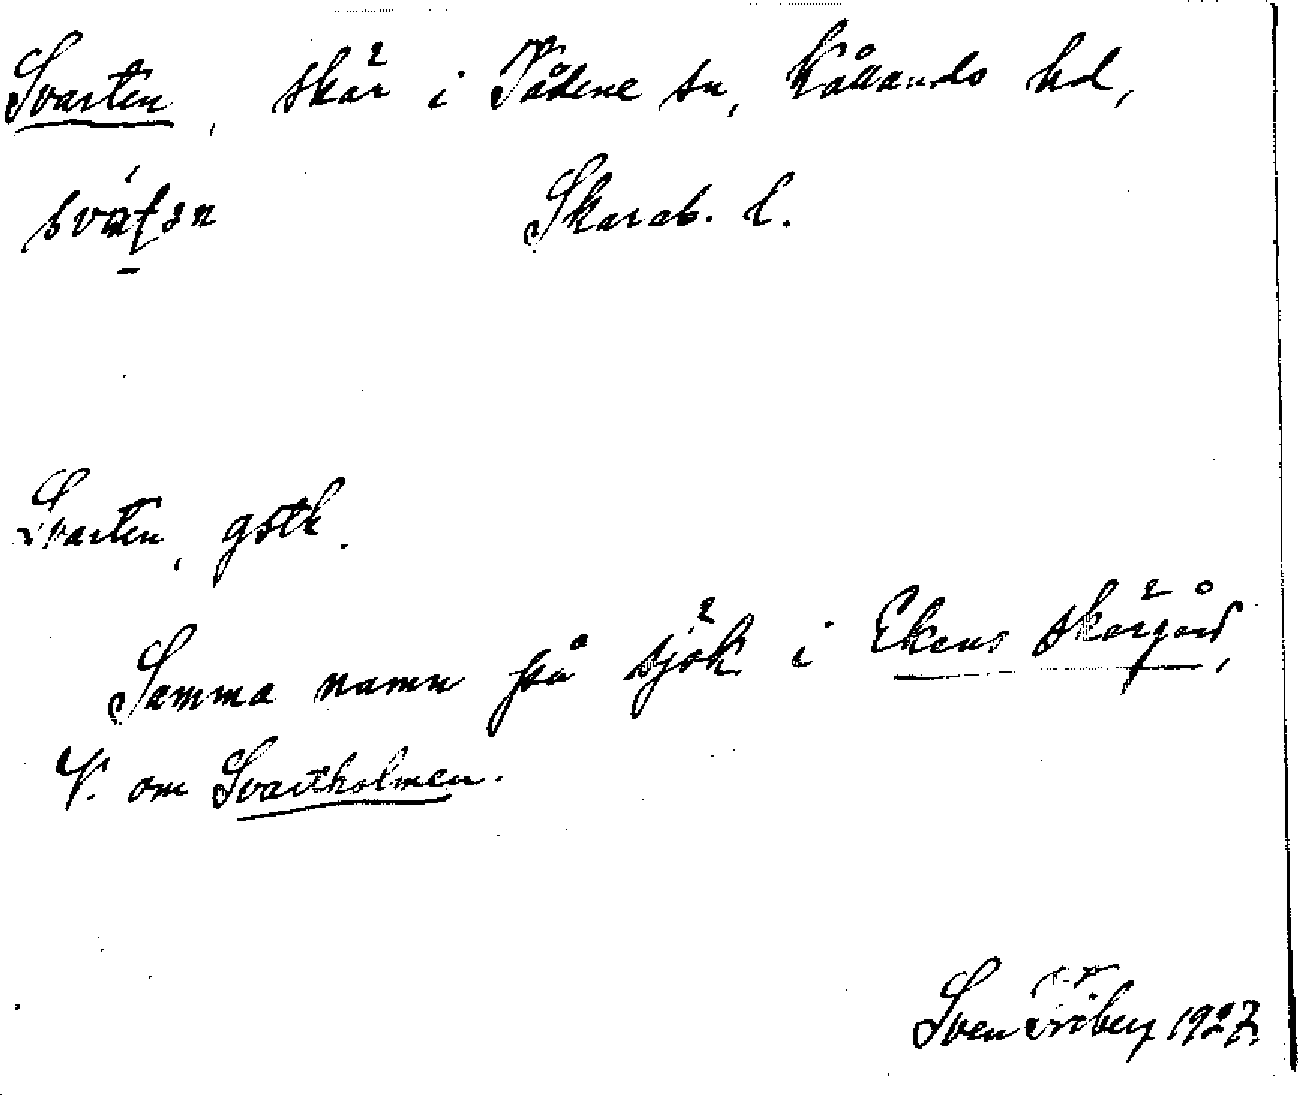 Svarten, skär i Tådene sn, Kållands hd,
Skarab. l.
Svarten, gstk.
Samma namn på sjök. i Ekens skärgård,
V. om Svartholmen.
Sven Fröberg 1927.